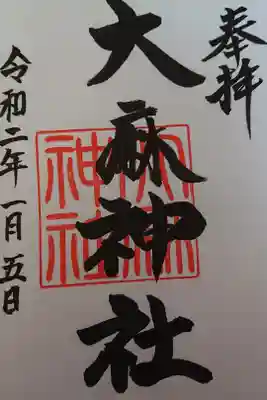 奉拝
大麻神社
大麻神社
令和二年一月五日